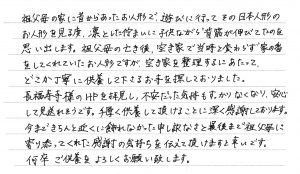 祖父母の家に昔からあったお人形で、遊びに行ってその日本人形の
お人形を見る度、凛とした佇まいに子供ながら背筋が伸びてたのを
思い出します。祖父母の亡き後、空き家で当時と変わらず家の番
をしてくれていたお人形ですが、空き家を整理するにあたって、
どこか丁寧に供養して下さるお寺を探しておりました。
長福寿寺様のHPを拝見し、不安だった気持もすっかりなくなり、安心
して見送れそうです。手厚く供養して頂けることに深く感謝しております。
今まできちんと近くに飾れなかった申し訳なさと最後まで祖父母に
寄り添ってくれた感謝の気持ちを伝えて頂けますと幸いです。
何卒ご供養をよろしくお願い致します。